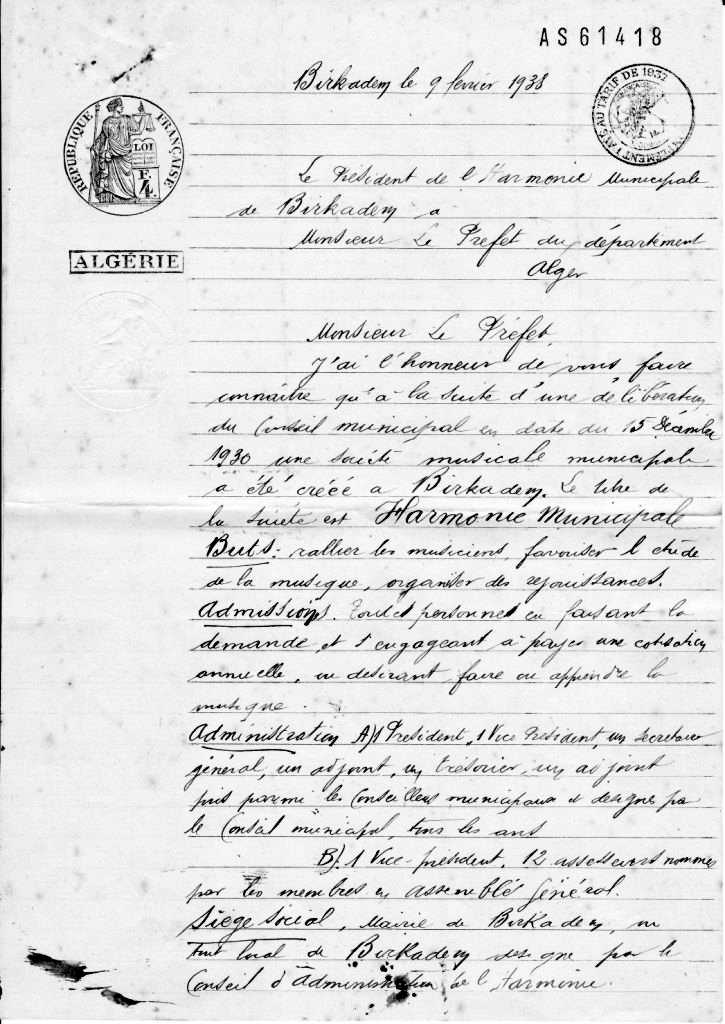 AS61418
Birkadem le 9 fevrier 1938
RÉPUBLIQUE FRANÇAISE
LOI
F.
4
AU TARIF DE 1937
Le Président de l'Harmonie Municipale
de Birkadem a
Monsieur Le Prefet du département
Alger
ALGÉRIE
Monsieur Le Préfet,
J'ai l'honneur de vous faire
connaitre qu'à la suite d'une délibération
du Conseil municipal en date du 15 Décembre
1930 une Société musicale municipale
a été créée a Birkadem. Le titre de
la Société est Harmonie Municipale
Buts: rallier les musiciens, favoriser l'étude
de la musique, organiser des rejouissances.
Admissions. Toutes personnes en faisant la
demande, et s'engageant à payer une cotisation
annuelle, ou desirant faire ou apprendre la
musique.
Administration A) 1 President, 1 Vice President, un secretaire
général, un adjoint, un trésorier, un adjoint
pris parmi les Conseillers municipaux et designes par
le Conseil municipal, tous les ans
B) 1 Vice-président, 12 assesseurs nommes
par les membres en assemblé Général.
Siège Social, Mairie de Birkadem, ou
tout local de Birkadem designe par le
Conseil d'Administration de l'Harmonie.